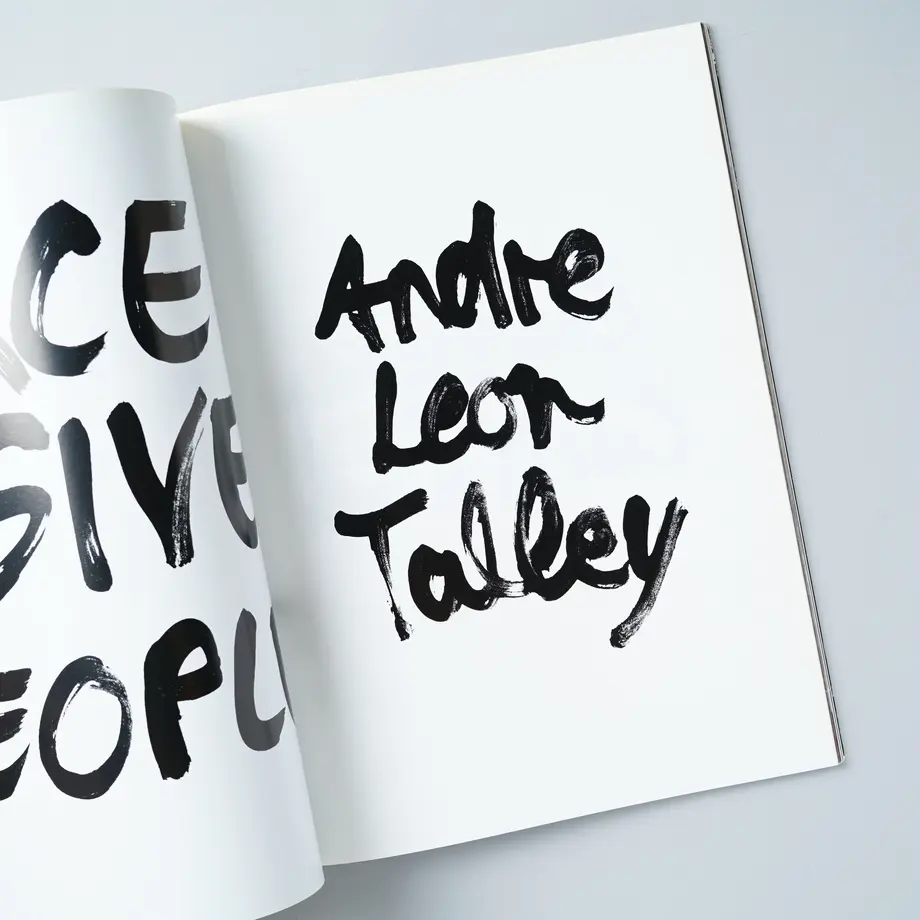 CE
SIVE
EOPL
Andre
Leon
Talley